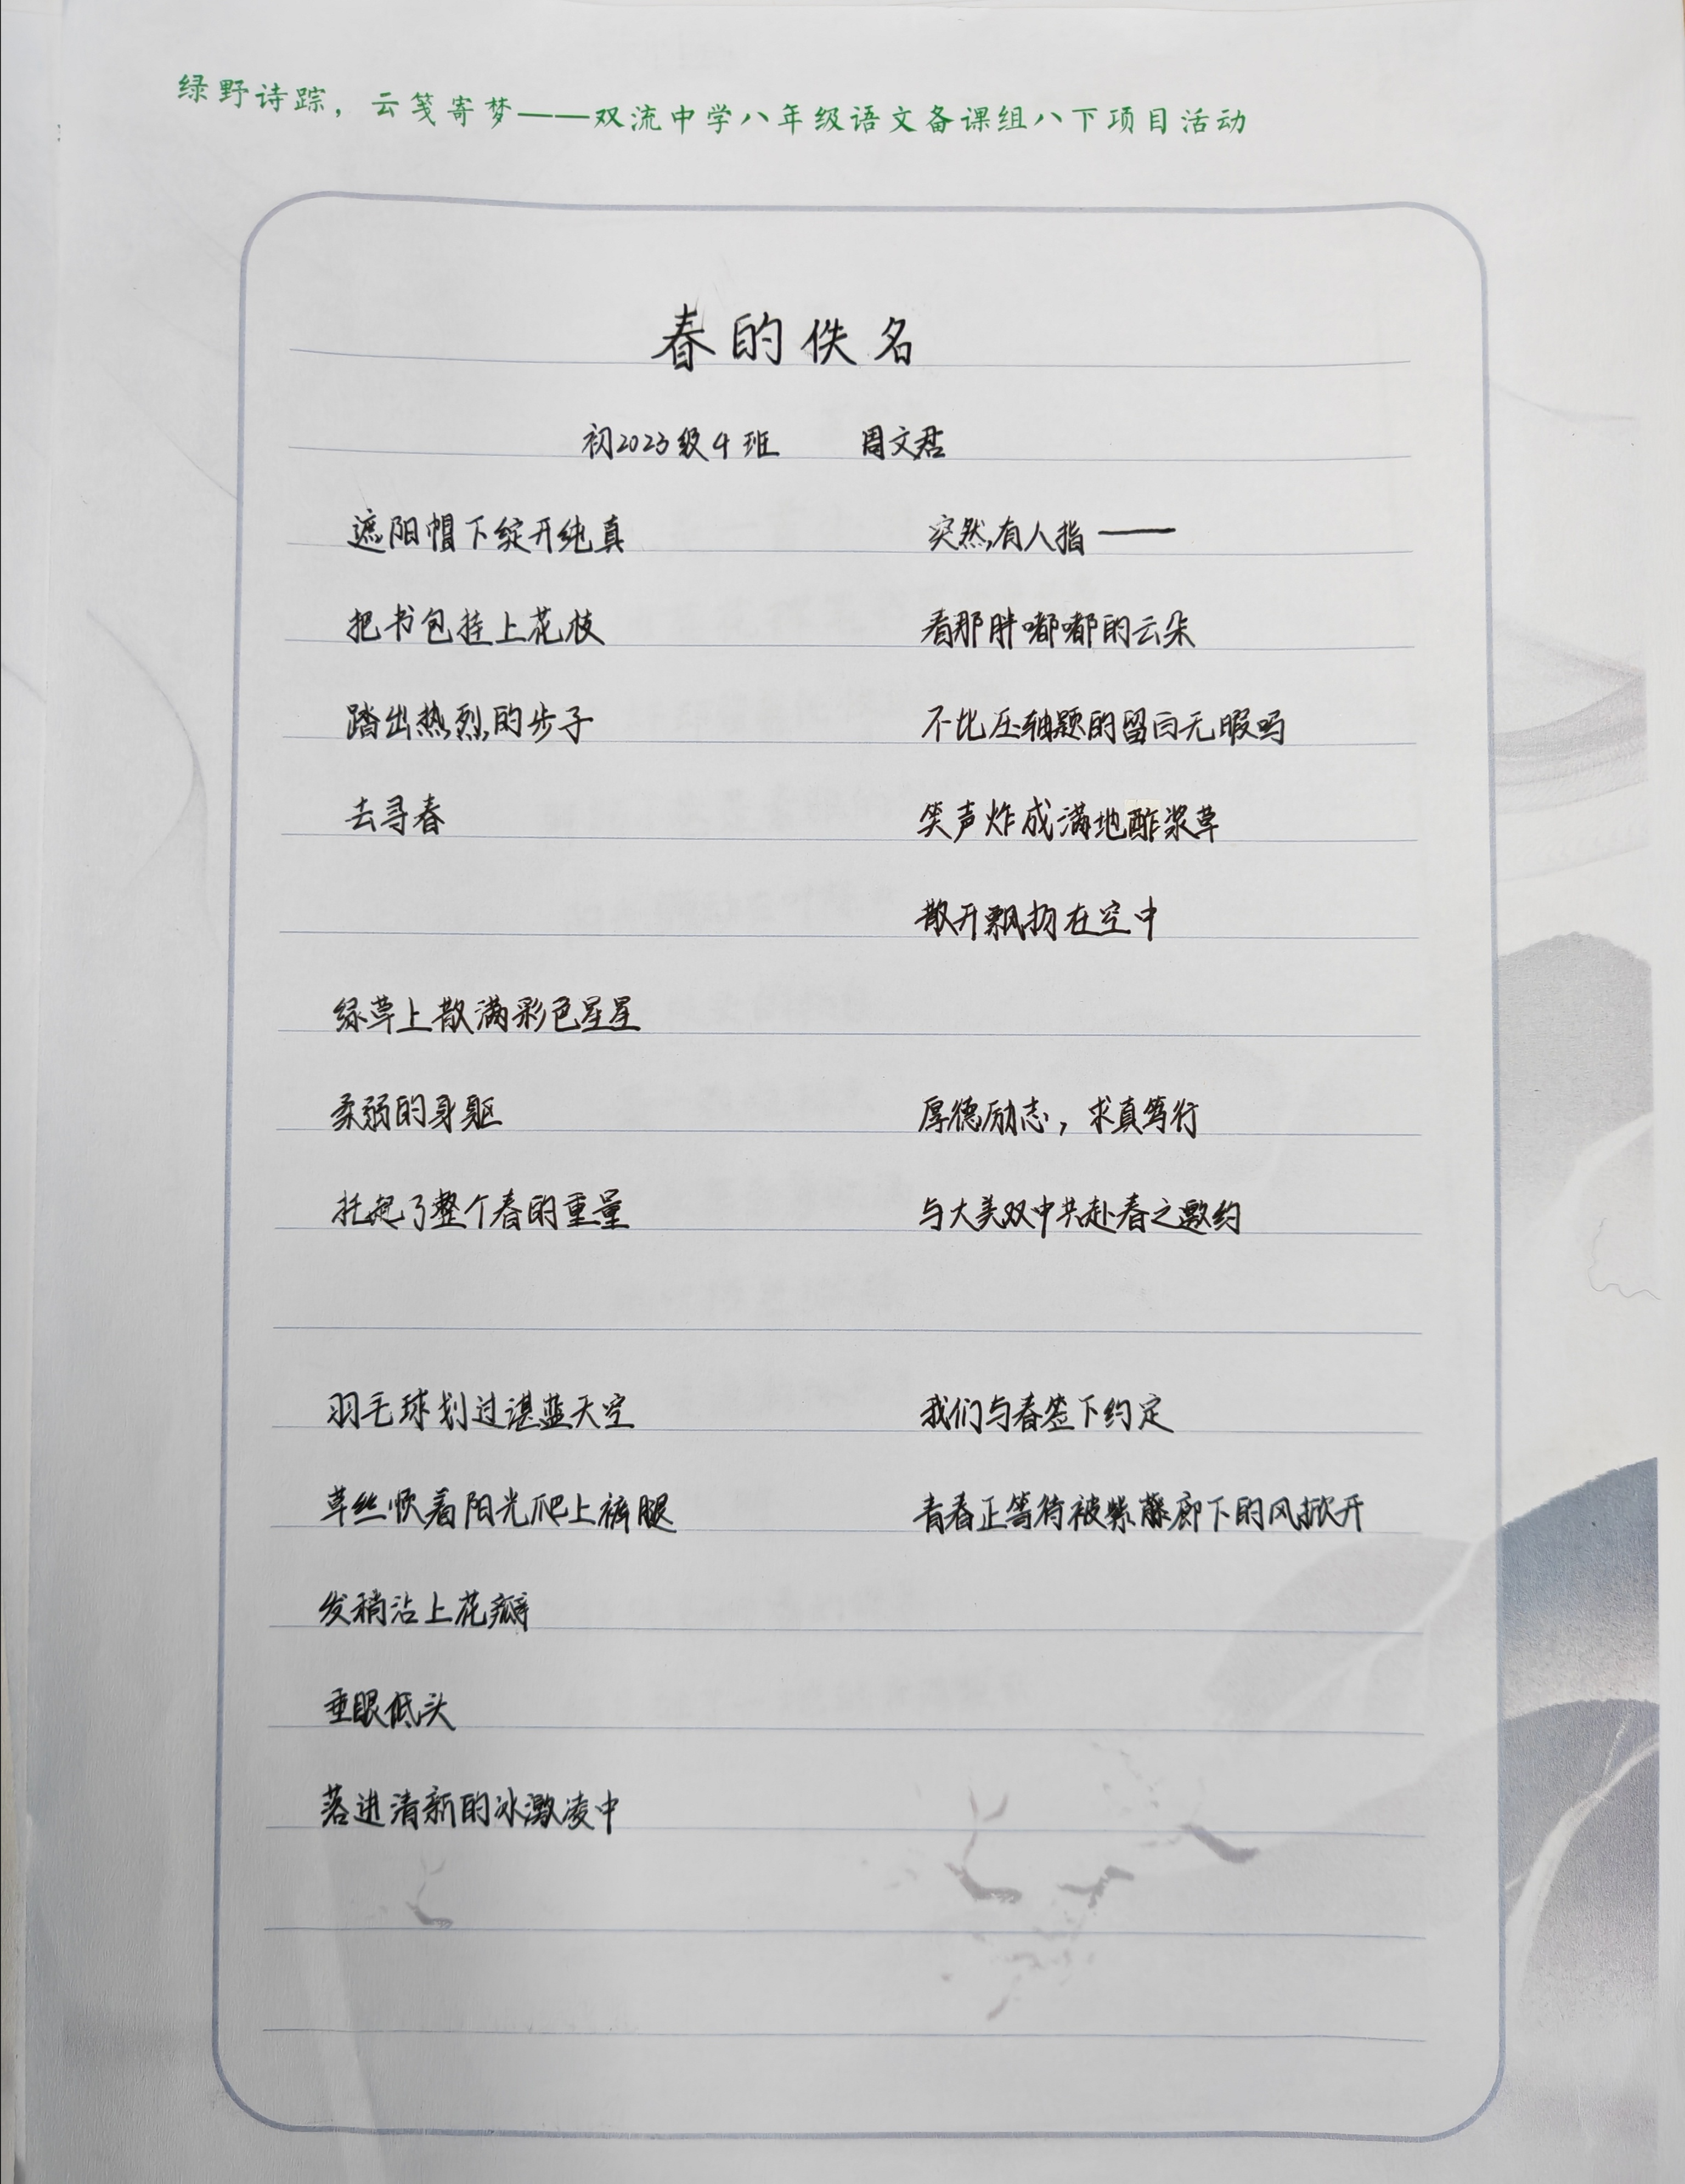 绿野诗踪，云笺寄梦——双流中学八年级语文备课组八下项目活动
春的佚名
初2023级4班 周文君
遮阳帽下绽开纯真
把书包挂上花枝
踏出热烈的步子
去寻春
绿草上散满彩色星星
柔弱的身躯
托起了整个春的重量
羽毛球划过湛蓝天空
草丝顺着阳光爬上裤腿
发稍沾上花瓣
垂眼低头
落进清新的冰激凌中
突然,有人指——
看那胖嘟嘟的云朵
不比压轴题的留白无暇吗
笑声炸成满地酢浆草
散开飘扬在空中
厚德励志，求真笃行
与大美双中共赴春之邀约
我们与春签下约定
青春正等待被紫藤廊下的风掀开